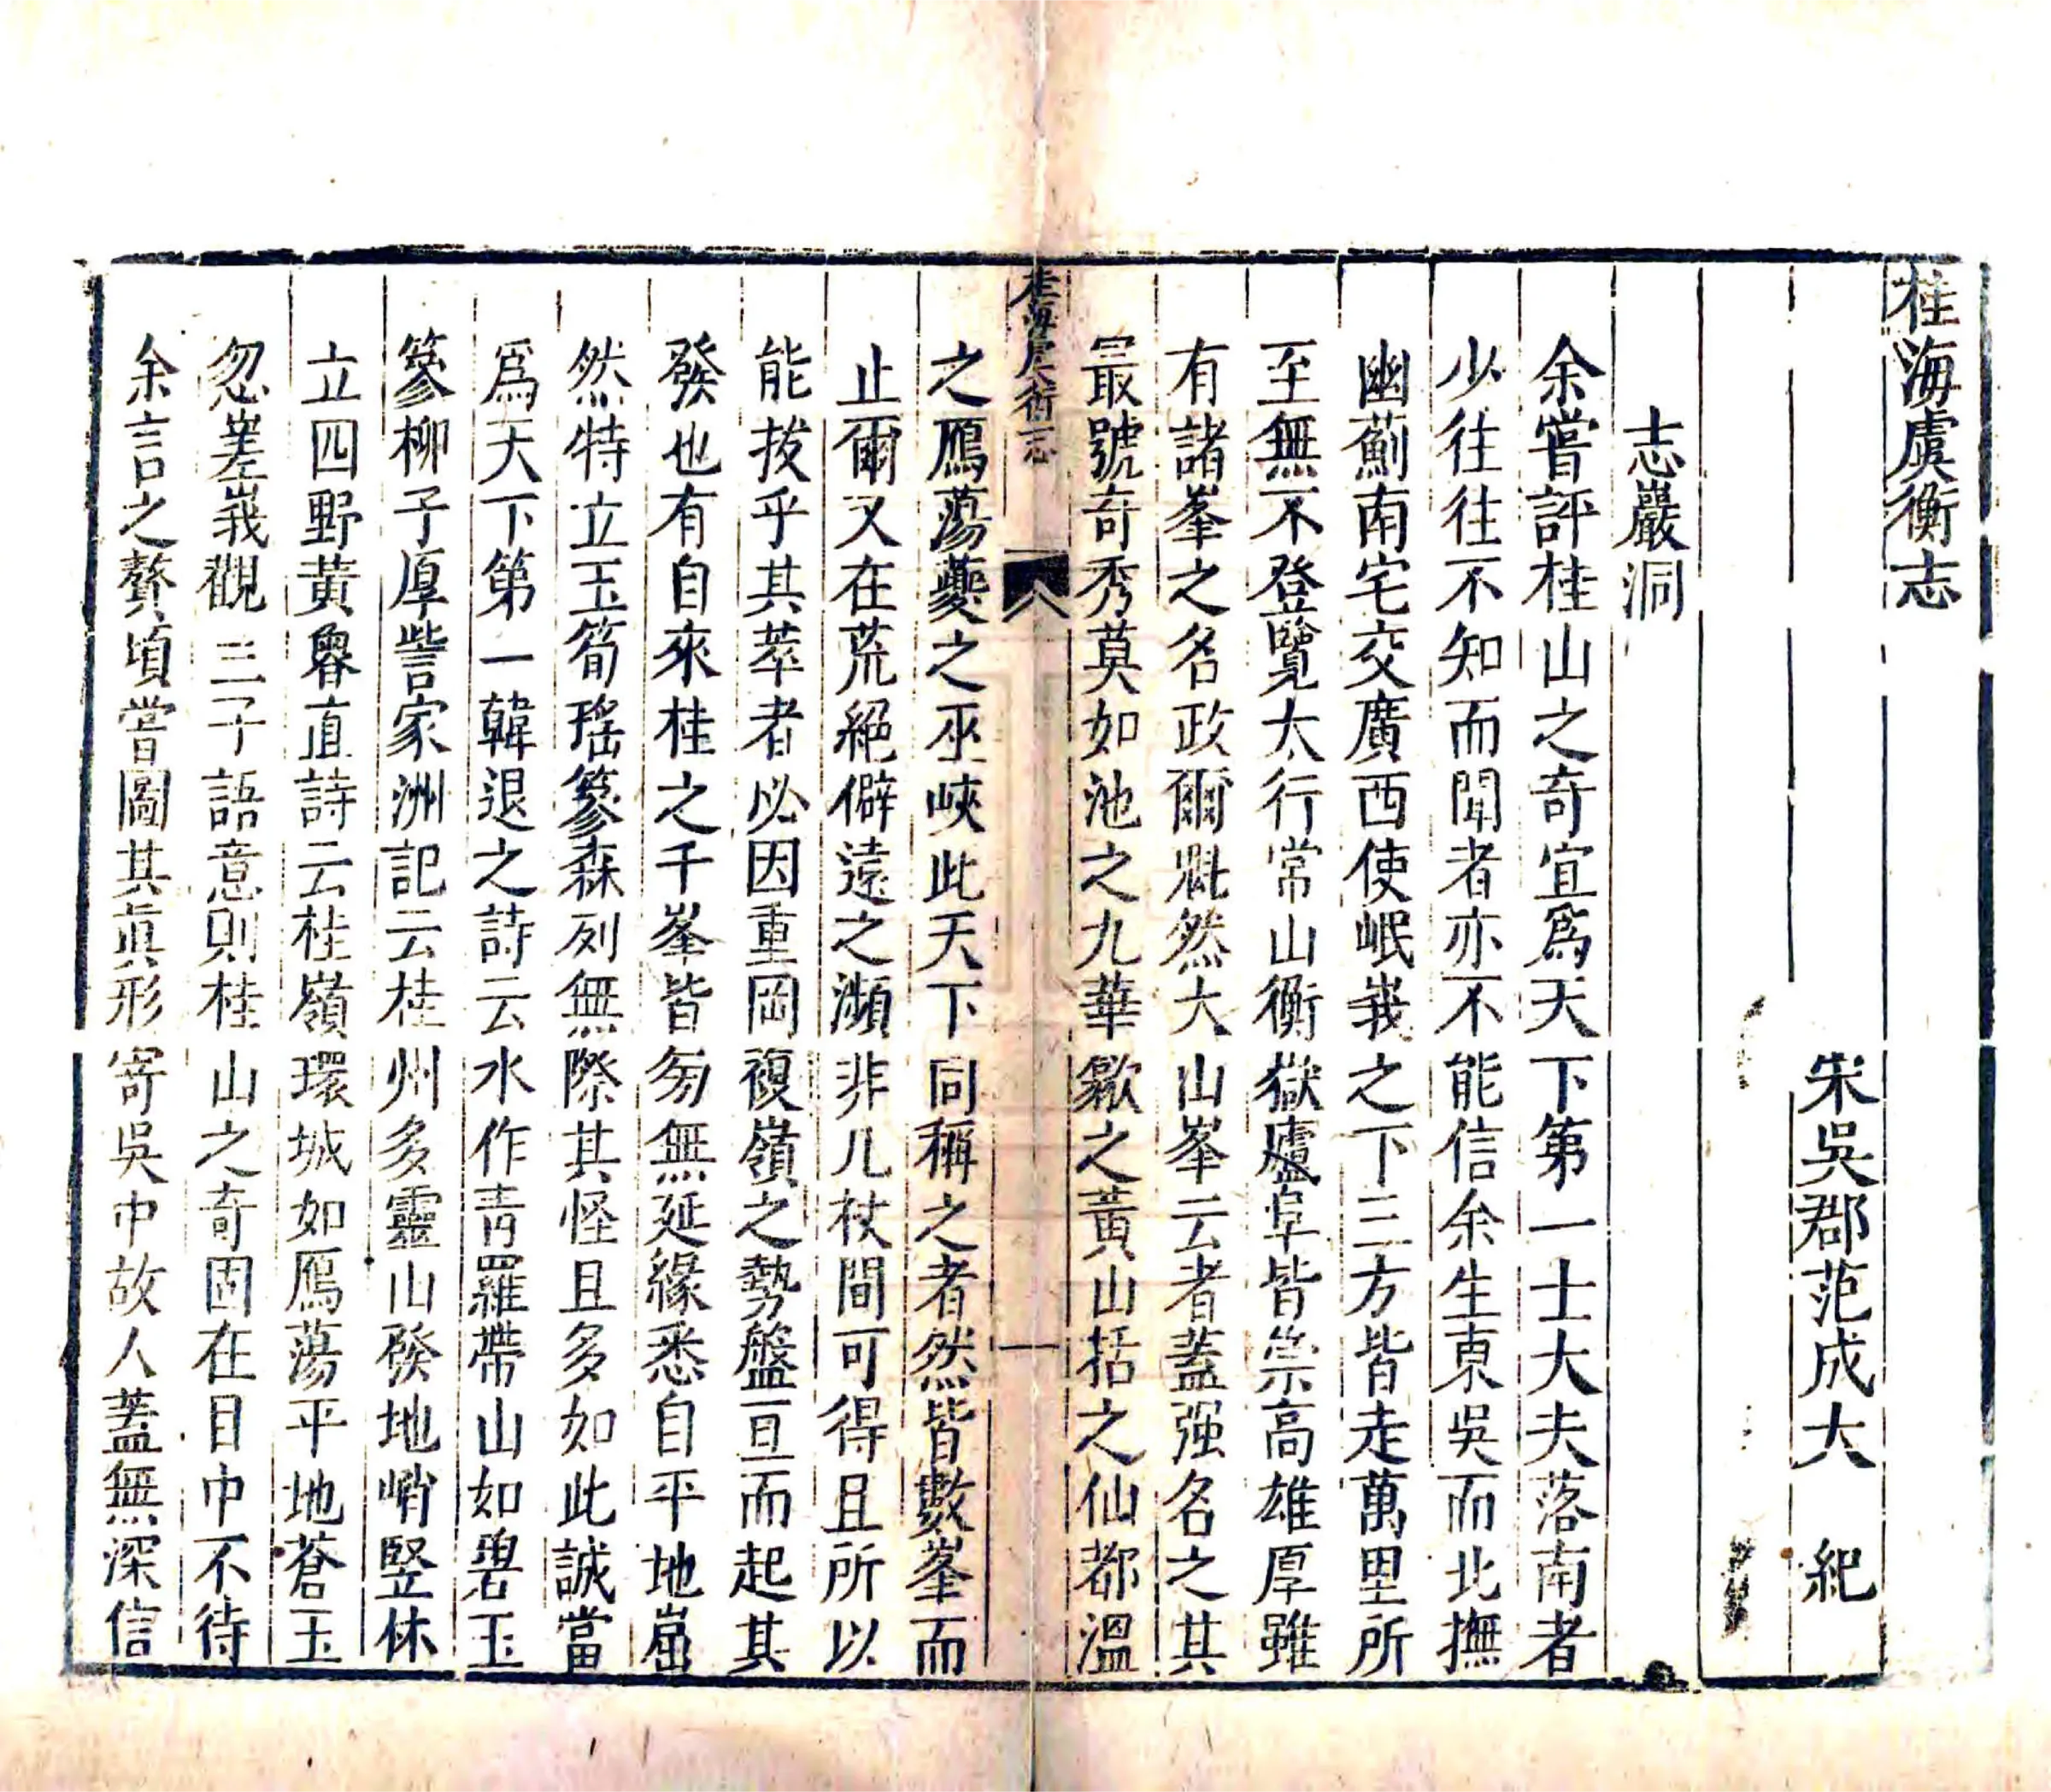 桂海虞衡志
宋吳郡范成大　紀
志巖洞
余嘗評桂山之奇宜爲天下第一士大夫落南者
少往往不知而聞者亦不能信余生東吳而北撫
幽薊南宅交廣西使岷峩之下三方皆走萬里所
至無不登覽太行常山衡嶽廬阜皆崇高雄厚雖
有諸峯之名政爾魁然大山峯云者蓋强名之其
最號奇秀莫如池之九華歙之黃山括之仙都溫
桂海虞衡志
一
之鴈蕩夔之巫峽此天下同稱之者然皆數峯而
止爾又在荒絕僻遠之瀕非几杖間可得且所以
能拔乎其萃者必因重岡複嶺之勢盤亘而起其
發也有自來桂之千峯皆旁無延緣悉自平地崛
然特立玉筍瑤篸森列無際其怪且多如此誠當
爲天下第一韓退之詩云水作青羅帶山如碧玉
篸柳子厚訾家洲記云桂州多靈山發地峭竪林
立四野黃魯直詩云桂嶺環城如鴈蕩平地蒼玉
忽嵳峩觀三子語意則桂山之奇固在目中不待
余言之贅頃嘗圖其眞形寄吳中故人蓋無深信